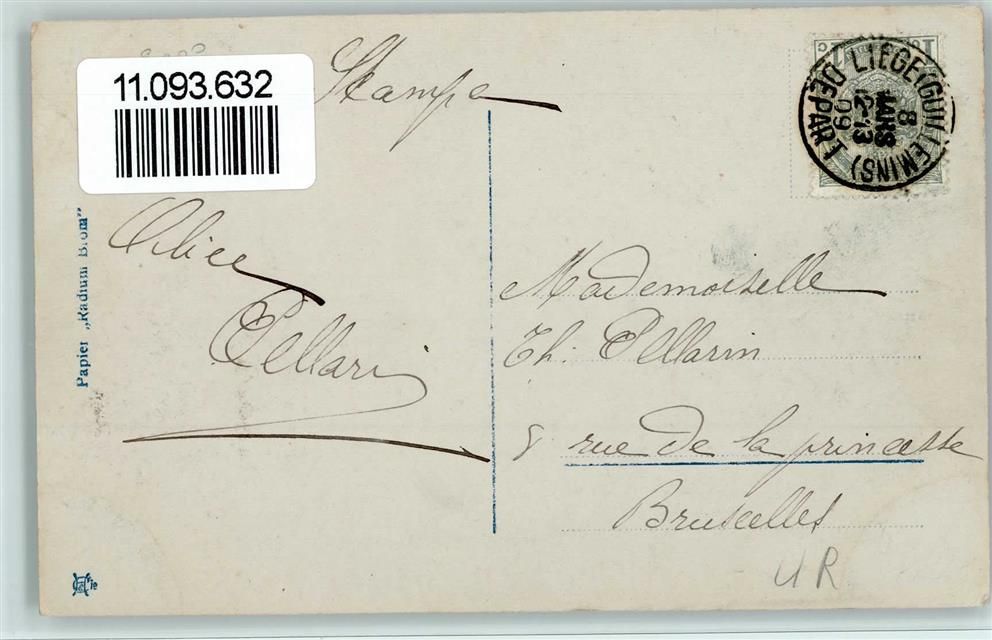 11.093.632
Stampe
Alice
Pellarin
Papier „Radium Brom"
LIEGE (GUILLEMINS)
8
MARS
12-13
09
DEPART
Mademoiselle
Th. Pellarin
8 rue de la princesse
Bruxelles
UR